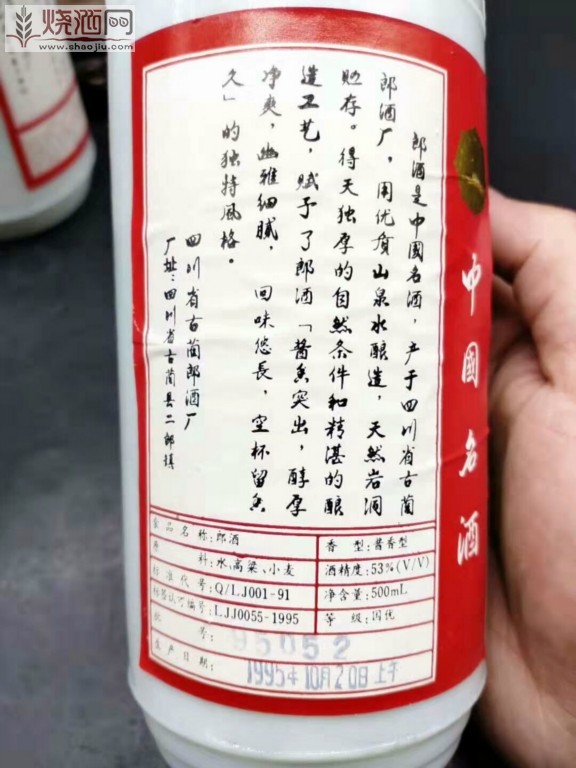 烧酒网
www.shaojiu.com
郎酒是中國名酒，产于四川省古藺
郎酒厂，用优质山泉水酿造，天然岩洞
贮存。得天独厚的自然条件和精湛的酿
造工艺，赋予了郎酒「酱香突出，醇厚
净爽，幽雅细腻，回味悠長，空杯留香
久」的独特风格。
四川省古藺郎酒厂
厂址：四川省古藺县二郎镇
中國名酒
食品名称:郎酒
香型:酱香型
原料:水、高粱、小麦
酒精度:53%(V/V)
标准代号:Q/LJ001-91
净含量:500mL
标签认可编号:LJJ0055-1995
等级:国优
批号:95052
生产日期:1995年10月20日上午